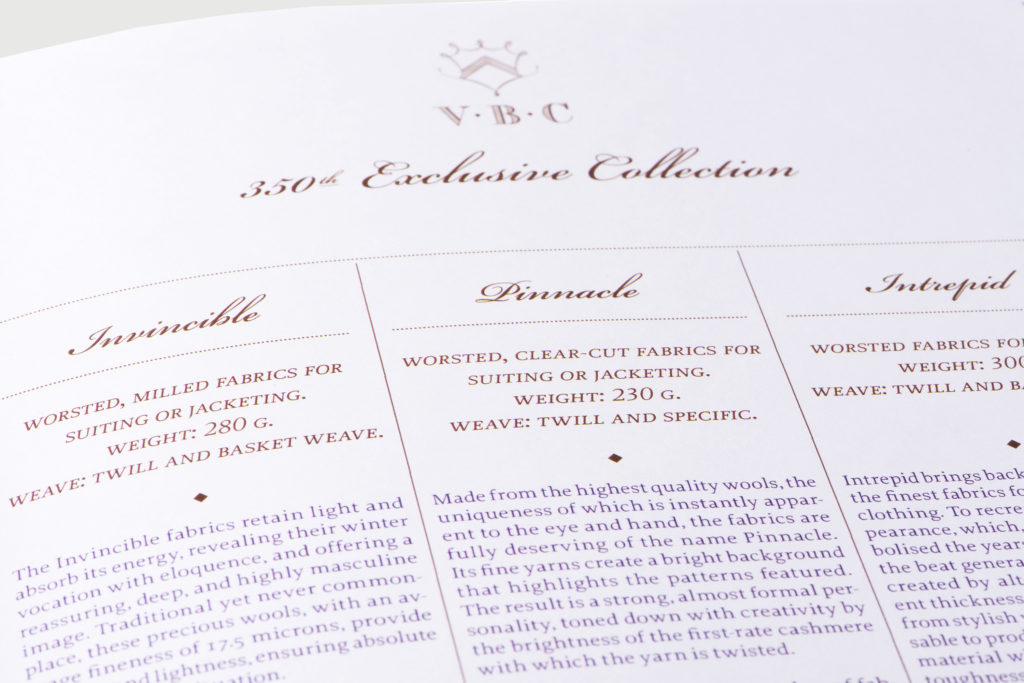 V·B·C
350th Exclusive Collection
Invincible
WORSTED, MILLED FABRICS FOR
SUITING OR JACKETING.
WEIGHT: 280 G.
WEAVE: TWILL AND BASKET WEAVE.
The Invincible fabrics retain light and
absorb its energy, revealing their winter
vocation with eloquence, and offering a
reassuring, deep, and highly masculine
image. Traditional yet never common-
place, these precious wools, with an av-
fineness of 17.5 microns, provide
and lightness, ensuring absolute
Pinnacle
WORSTED, CLEAR-CUT FABRICS FOR
SUITING OR JACKETING.
WEIGHT: 230 G.
WEAVE: TWILL AND SPECIFIC.
Made from the highest quality wools, the
uniqueness of which is instantly appar-
ent to the eye and hand, the fabrics are
fully deserving of the name Pinnacle.
Its fine yarns create a bright background
that highlights the patterns featured.
The result is a strong, almost formal per-
sonality, toned down with creativity by
the brightness of the first-rate cashmere
with which the yarn is twisted.
Intrepid
WORSTED FABRICS FO
WEIGHT: 300
WEAVE: TWILL AND BA
Intrepid brings back
the finest fabrics fo
clothing. To recre
pearance, which,
bolised the years
the beat genera
created by alt
ent thickness
from stylish
sable to prod
material w
toughness